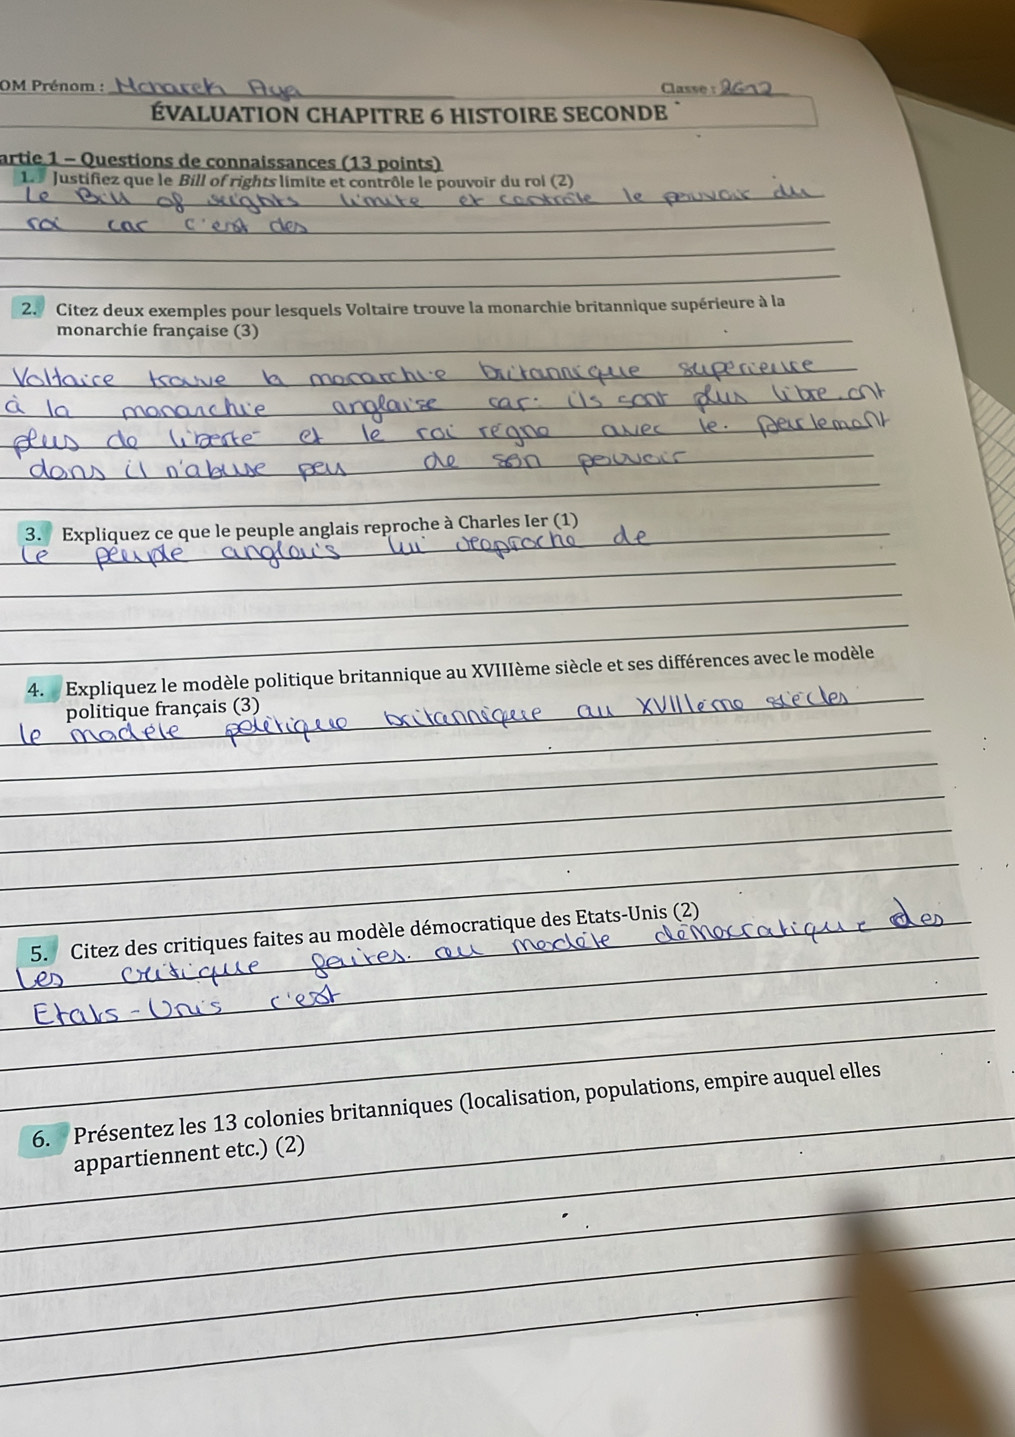 OM Prénom : Monarek Aya Classe : 2G12
ÉVALUATION CHAPITRE 6 HISTOIRE SECONDE
artie 1 – Questions de connaissances (13 points)
1. Justifiez que le Bill of rights limite et contrôle le pouvoir du roi (2)
le Bill of rights limite et contrôle le pouvoir du
roi car c'est des
2. Citez deux exemples pour lesquels Voltaire trouve la monarchie britannique supérieure à la
monarchie française (3)
Voltaire trouve la monarchie britannique supérieure
à la monarchie anglaise car: ils sont plus libre. ont
plus de liberté et le roi règne avec le. parlement
dans il n'abuse peu de son pouvoir
3. Expliquez ce que le peuple anglais reproche à Charles Ier (1)
le peuple anglais lui reproche de
4. Expliquez le modèle politique britannique au XVIIIème siècle et ses différences avec le modèle
politique français (3)
le modèle politique britannique au XVIIIème siècles
5. Citez des critiques faites au modèle démocratique des Etats-Unis (2)
Les critique faites. au modèle démocratique des
Etats-Unis c'est
6. Présentez les 13 colonies britanniques (localisation, populations, empire auquel elles
appartiennent etc.) (2)